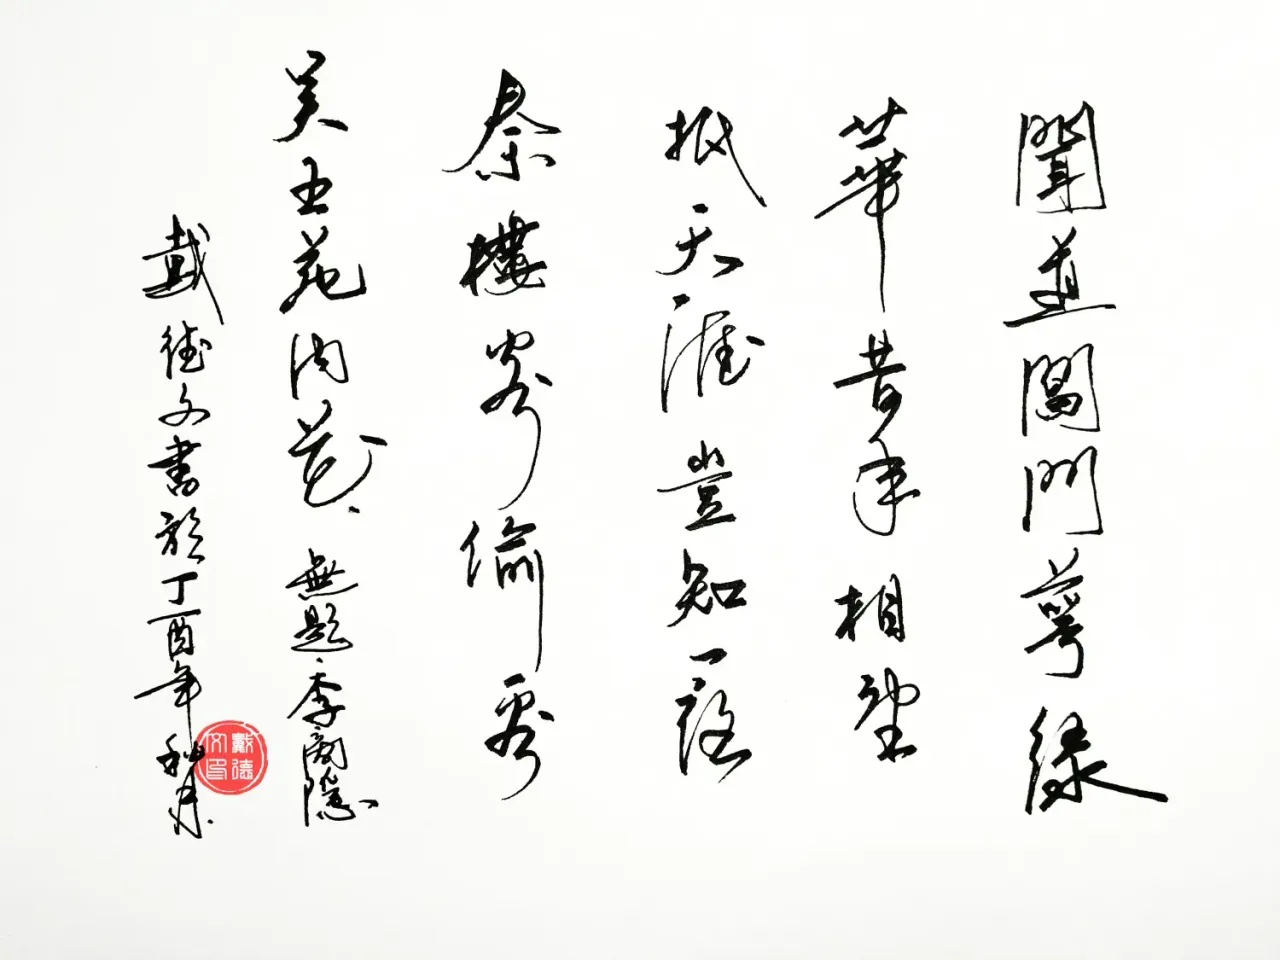 聞道閶門萼綠
華昔年相望
抵天涯豈知一夜
秦樓客偷看
吳王苑内花 無題 李商隱
戴德文書於丁酉年秋月
戴德文印